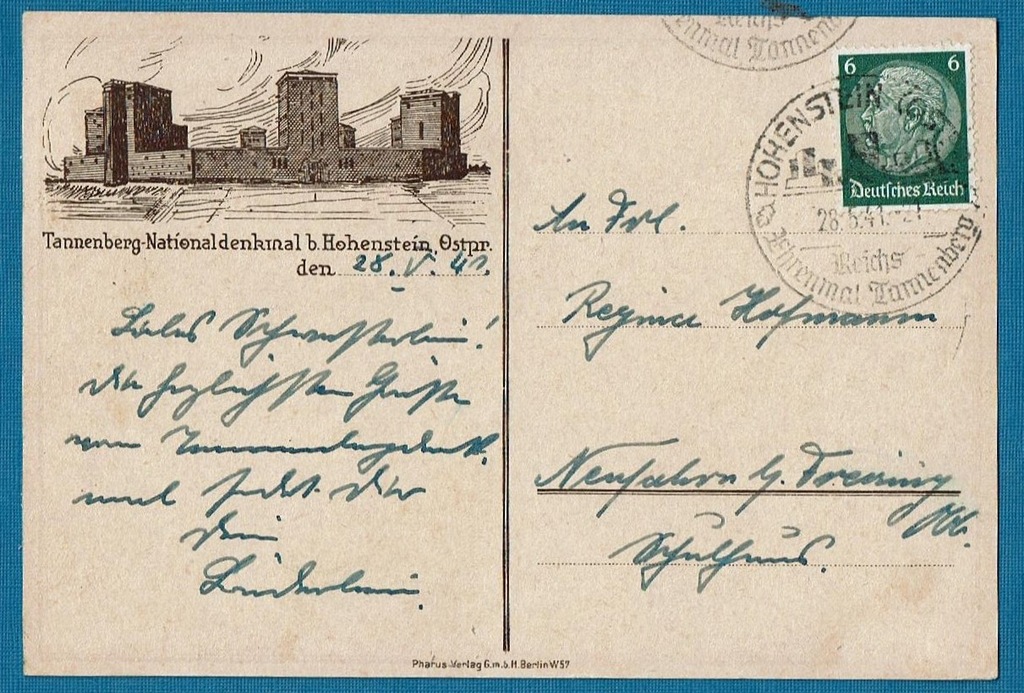 Tannenberg-Nationaldenkmal b. Hohenstein, Ostpr.
den 28. V. 41.
Liebes Schwesterlein!
Die herzlichsten Grüße
vom
mal sendet Dir
Dein
Brüderlein.
Pharus-Verlag G.m.b.H. Berlin W57
Reichs
Tannenb
6 6
Deutsches Reich
HOHENSTEIN
28.5.41.-21
Reichs
Ehrenmal Tannenberg
An Frl.
Regina Hofmann
Neufahrn b. Freising
Obb.
Schulhaus.